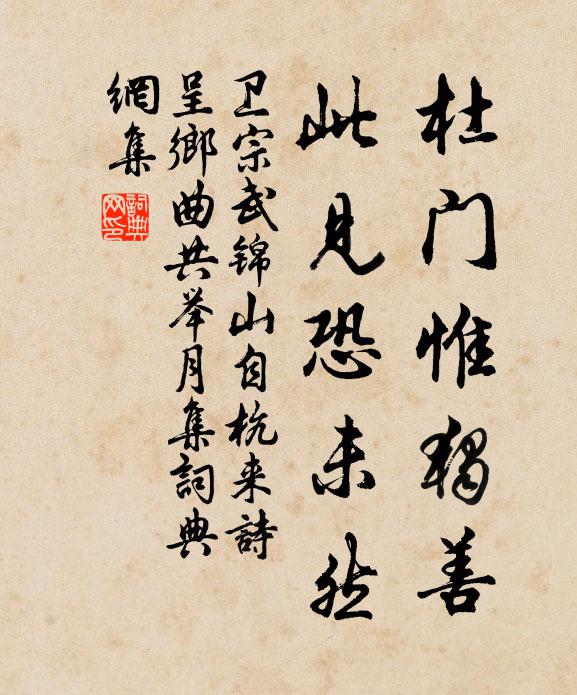 杜门惟独善
此见恐未然
卫宗武锦山自杭来詩
呈鄉曲共举月集詞典
網集
詞典網印